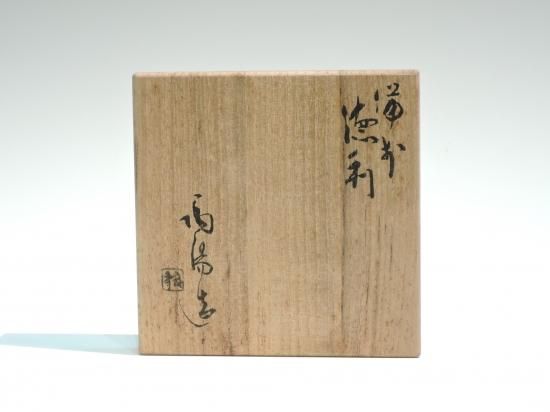 備前
徳利
陶陽造